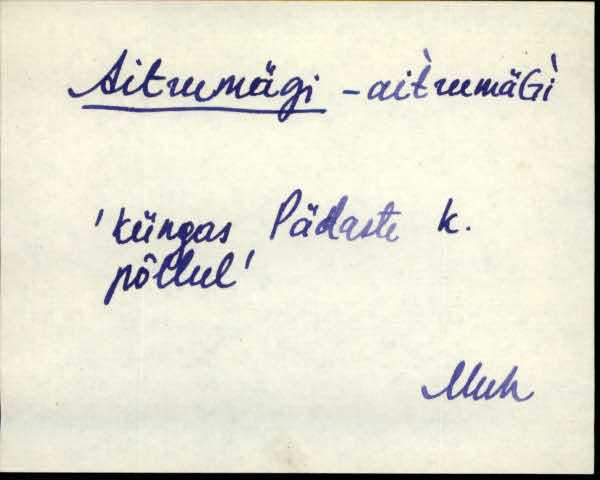 Aitrumägi - aìtrumäGì
'küngas Pädaste k.
põllul'
Muh